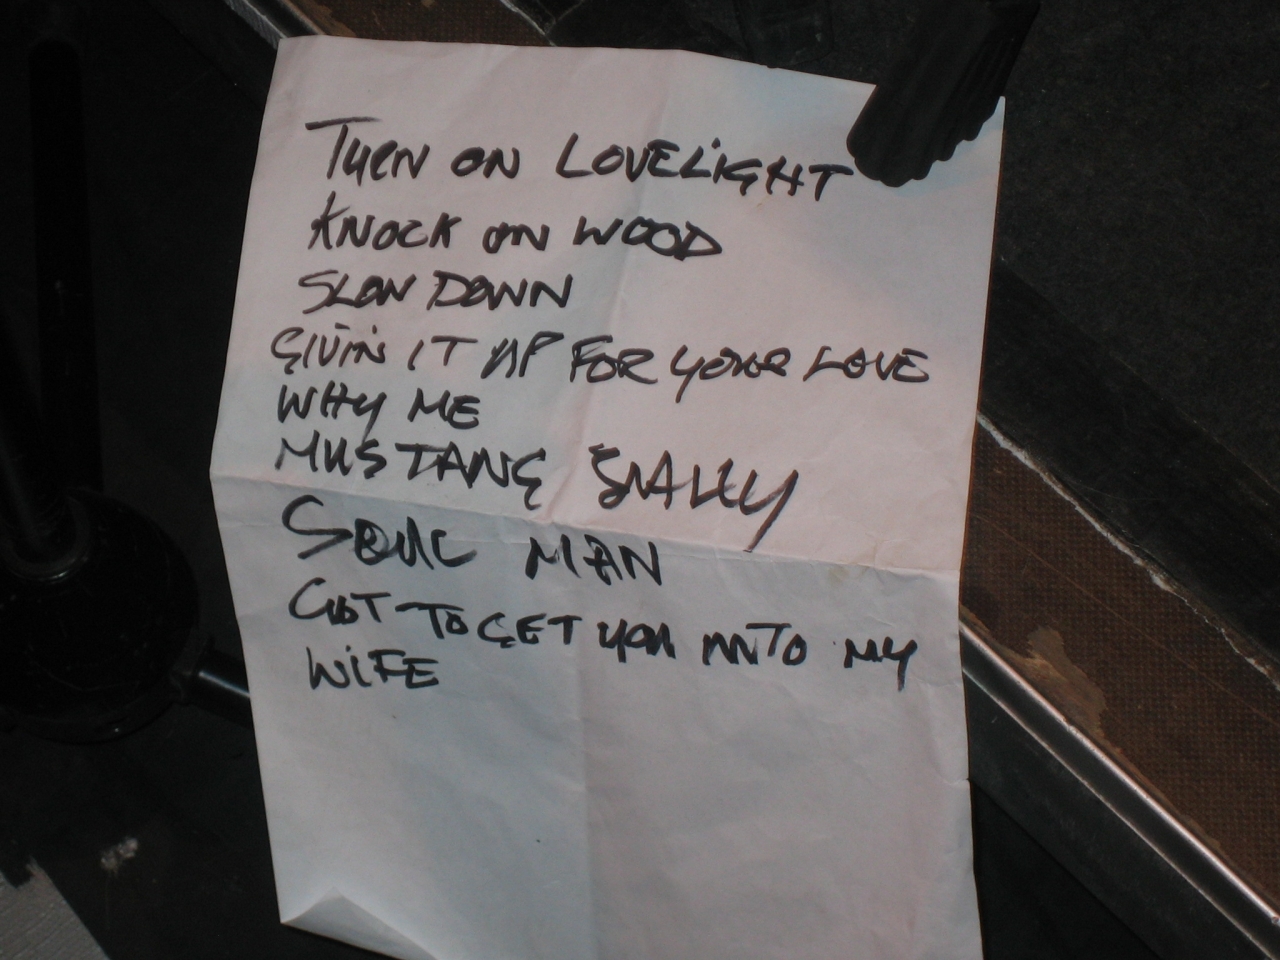 TURN ON LOVELIGHT
KNOCK ON WOOD
SLOW DOWN
GIVIN IT UP FOR YOUR LOVE
WHY ME
MUSTANG SALLY
SOUL MAN
GOT TO GET YOU INTO MY
WIFE